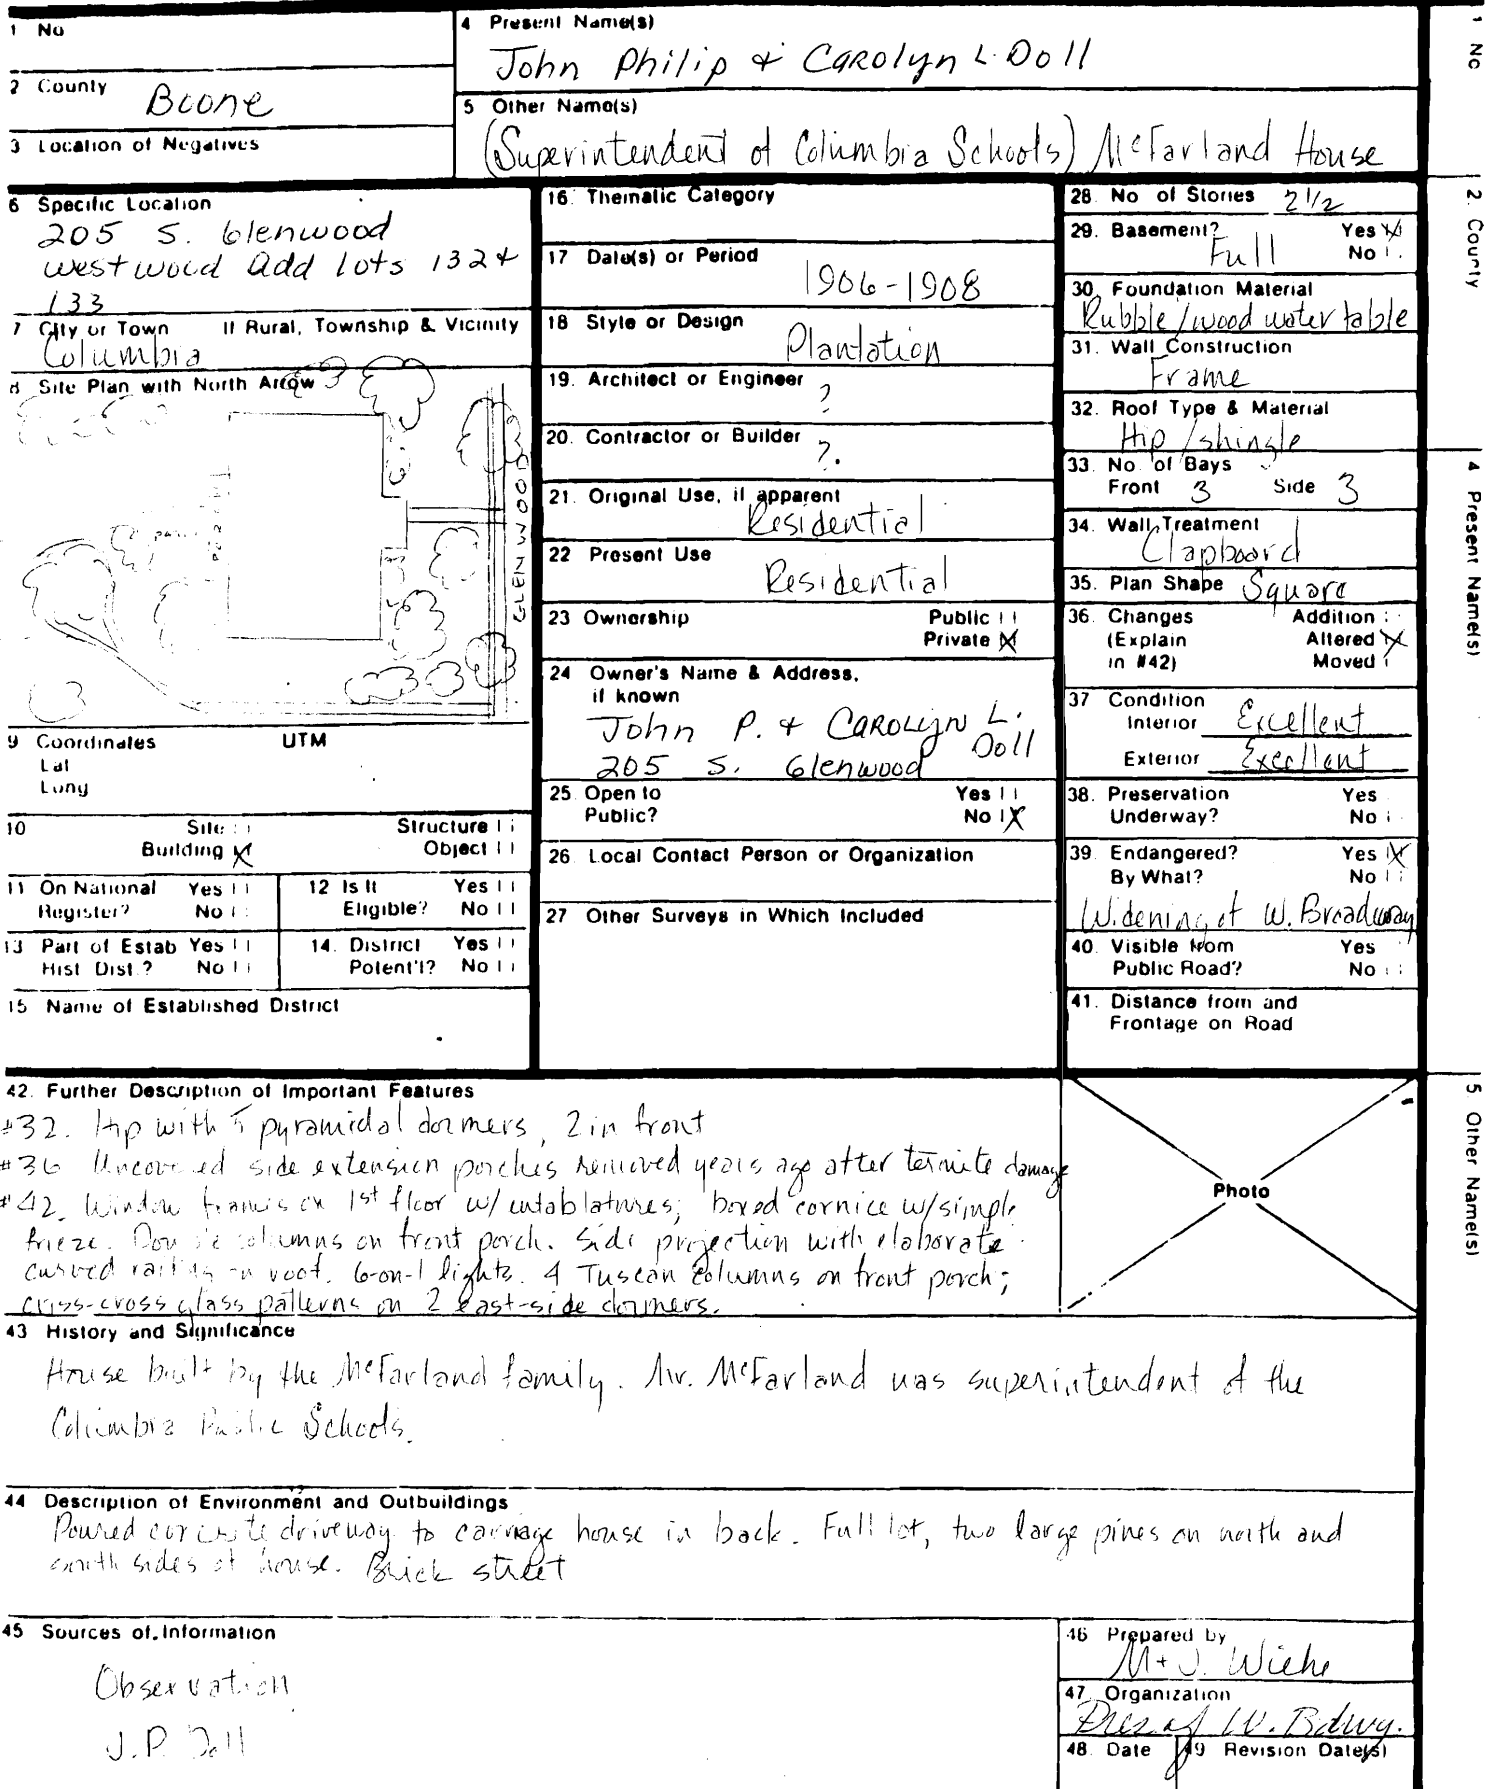 1 No
2 County Boone
3 Location of Negatives
4 Present Name(s)
John Philip & Carolyn L. Doll
5 Other Name(s)
(Superintendent of Columbia Schools) McFarland House
6 Specific Location
205 S. Glenwood
Westwood Add Lots 132 &
133
7 City or Town If Rural, Township & Vicinity
Columbia
8 Site Plan with North Arrow
GLENWOOD
9 Coordinates UTM
Lat
Long
10 Site Structure
Building X Object
11 On National Yes
Register? No
12 Is It Yes
Eligible? No
13 Part of Estab Yes
Hist Dist.? No
14. District Yes
Potent'l? No
15 Name of Established District
16. Thematic Category
17 Date(s) or Period
1906-1908
18 Style or Design
Plantation
19. Architect or Engineer
?
20. Contractor or Builder
?.
21. Original Use, if apparent
Residential
22 Present Use
Residential
23 Ownership Public
Private X
24 Owner's Name & Address,
if known
John P. & Carolyn L.
Doll
205 S. Glenwood
25. Open to Yes
Public? No X
26. Local Contact Person or Organization
27 Other Surveys in Which Included
28. No of Stories 2 1/2
29. Basement? Yes X
Full No
30. Foundation Material
Rubble/wood water table
31. Wall Construction
Frame
32. Roof Type & Material
Hip/shingle
33. No. of Bays
Front 3 Side 3
34. Wall Treatment
Clapboard
35. Plan Shape Square
36. Changes Addition
(Explain Altered X
in #42) Moved
37 Condition
Interior Excellent
Exterior Excellent
38. Preservation Yes
Underway? No
39. Endangered? Yes X
By What? No
Widening of W. Broadway
40. Visible from Yes
Public Road? No
41. Distance from and
Frontage on Road
42. Further Description of Important Features
#32. Hip with 5 pyramidal dormers, 2 in front
#36 Uncovered side extension porches removed years ago after termite damage
#42. Window frames on 1st floor w/ entablatures; boxed cornice w/simple
frieze. Double columns on front porch. Side projection with elaborate
curved railing on roof. 6-on-1 lights. 4 Tuscan columns on front porch;
criss-cross glass patterns on 2 east-side dormers.
Photo
43 History and Significance
House built by the McFarland family. Mr. McFarland was superintendent of the
Columbia Public Schools.
44 Description of Environment and Outbuildings
Poured concrete driveway to carriage house in back. Full lot, two large pines on north and
south sides of house. Brick street
45 Sources of Information
Observation
J.P. Doll
46 Prepared by
M + J. Wiehe
47. Organization
Pres of W. Bdwy.
48. Date 49 Revision Date(s)
1 No
2. County
4 Present Name(s)
5 Other Name(s)